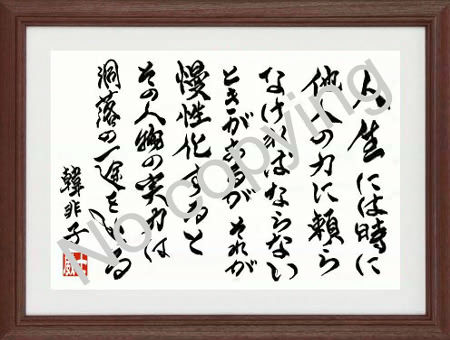 人生には時に
他人の力に頼ら
なければならない
ときがあるがそれが
慢性化すると
その人物の実力は
凋落の一途をたどる
韓非子
No copying